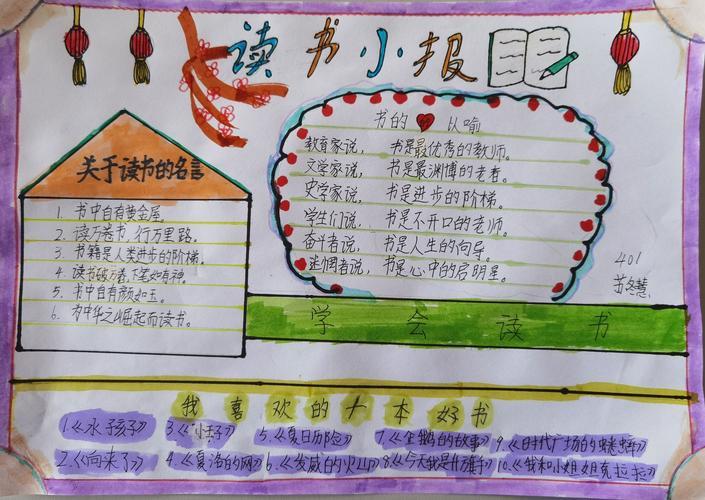 读书小报
关于读书的名言
1. 书中自有黄金屋.
2. 读万卷书,行万里路.
3. 书籍是人类进步的阶梯.
4. 读书破万卷,下笔如有神.
5. 书中自有颜如玉.
6. 为中华之崛起而读书.
书的 比喻
教育家说, 书是最优秀的教师。
文学家说, 书是最渊博的老者。
史学家说, 书是进步的阶梯。
学生们说, 书是不开口的老师。
奋斗者说, 书是人生的向导。
迷惘者说, 书是心中的启明星。
401
学会读书
我喜欢的十本好书
1.《水孩子》
2.《向来了》
3.《小王子》
4.《夏洛的网》
5.《夏日历险》
6.《发威的火山》
7.《企鹅的故事》
8.《今天我是升旗手》
9.《时代广场的蟋蟀》
10.《我和小姐姐克拉拉》